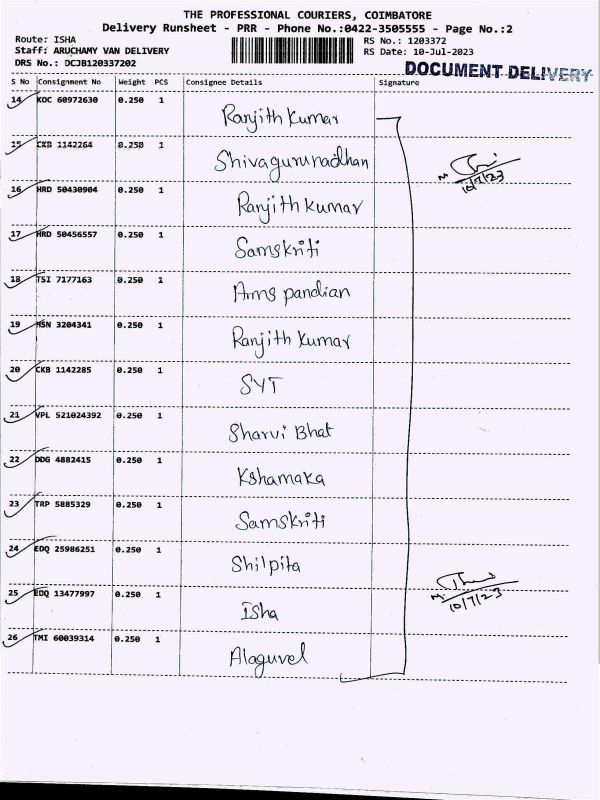 THE PROFESSIONAL COURIERS, COIMBATORE
Delivery Runsheet - PRR - Phone No.:0422-3505555 - Page No.:2
Route: ISHA
Staff: ARUCHAMY VAN DELIVERY
DRS No.: DCJB120337202
RS No.: 1203372
RS Date: 10-Jul-2023
DOCUMENT DELIVERY
S No Consignment No Weight PCS Consignee Details Signature
14 KOC 60972630 0.250 1 Ranjith Kumar
15 CKB 1142264 0.250 1 Shivagurunadhan
10/7/23
16 HRD 50430904 0.250 1 Ranjith Kumar
17 HRD 50456557 0.250 1 Samskriti
18 TSI 7177163 0.250 1 Arms pandian
19 HSN 3204341 0.250 1 Ranjith Kumar
20 CKB 1142285 0.250 1 SYT
21 VPL 521024392 0.250 1 Sharvi Bhat
22 DDG 4882415 0.250 1 Kshamaka
23 TRP 5885329 0.250 1 Samskriti
24 EDQ 25986251 0.250 1 Shilpita
25 EDQ 13477997 0.250 1 Isha
10/7/23
26 TMI 60039314 0.250 1 Alaguvel